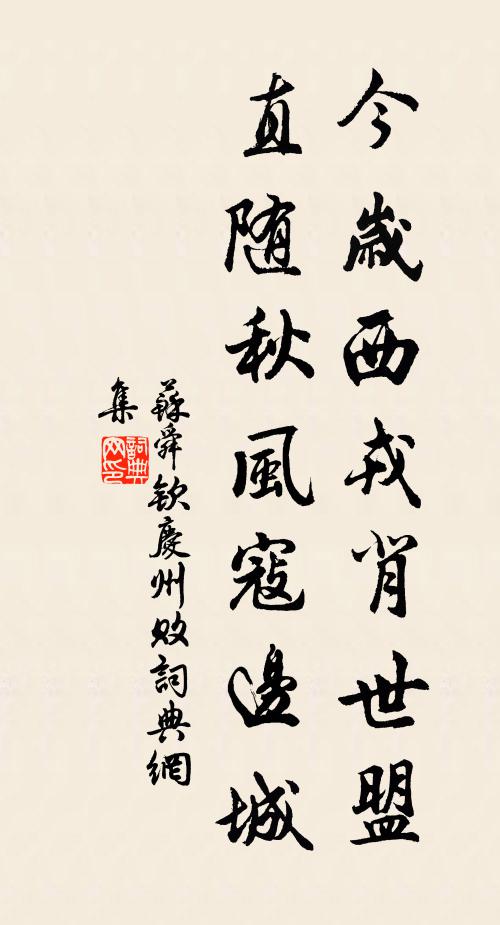 今歲西戎背世盟
直随秋風寇邊城
蘇舜欽慶州敗詞典網
集
詞典
网印